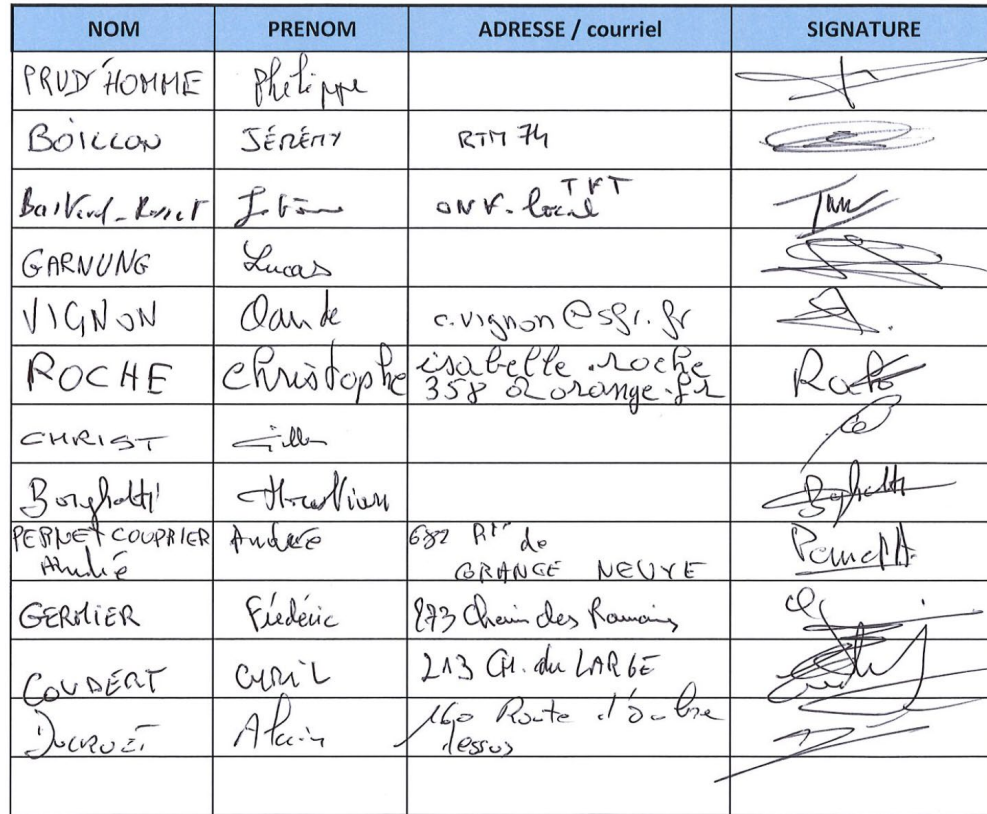 NOM PRENOM ADRESSE / courriel SIGNATURE
PRUD'HOMME Philippe
BOILLON JÉRÉMY RTM 74
ONF-local TFT
GARNUNG Lucas
VIGNON Claude c.vignon@sfr.fr
ROCHE Christophe isabelle.roche
358 @ orange.fr
CHRIST Gilles
Borghetti
PERNET COUDRIER André 682 Rte de
André GRANGE NEUVE
GERMIER Frédéric 273 Chemin des Romains
COUDERT CYRIL 213 CH. du LARGE
DUCROZ Alain 160 Route d'
dessus